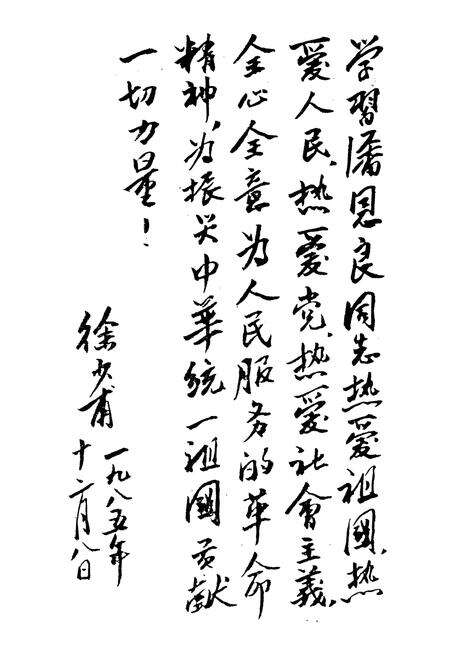 学習潘恩良同志热爱祖國、热
爱人民、热爱党、热爱社會主義、
全心全意为人民服务的革命
精神,为振兴中华统一祖國贡献
一切力量!
徐少甫
一九八五年
十二月八日